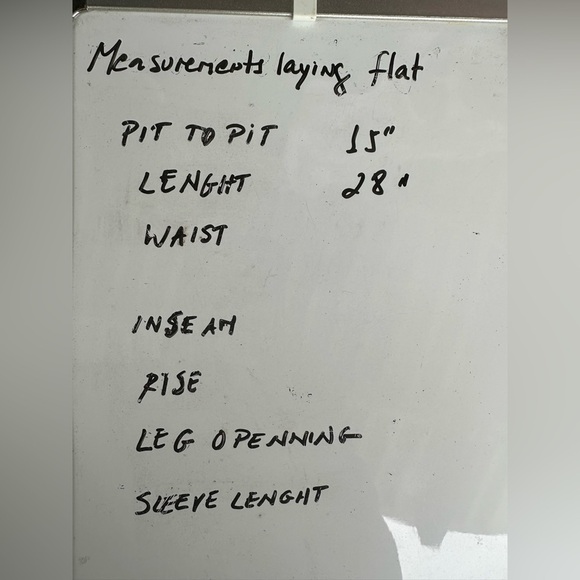 Measurements laying flat
PIT TO PIT 15"
LENGHT 28"
WAIST
INSEAM
RISE
LEG OPENNING
SLEEVE LENGHT